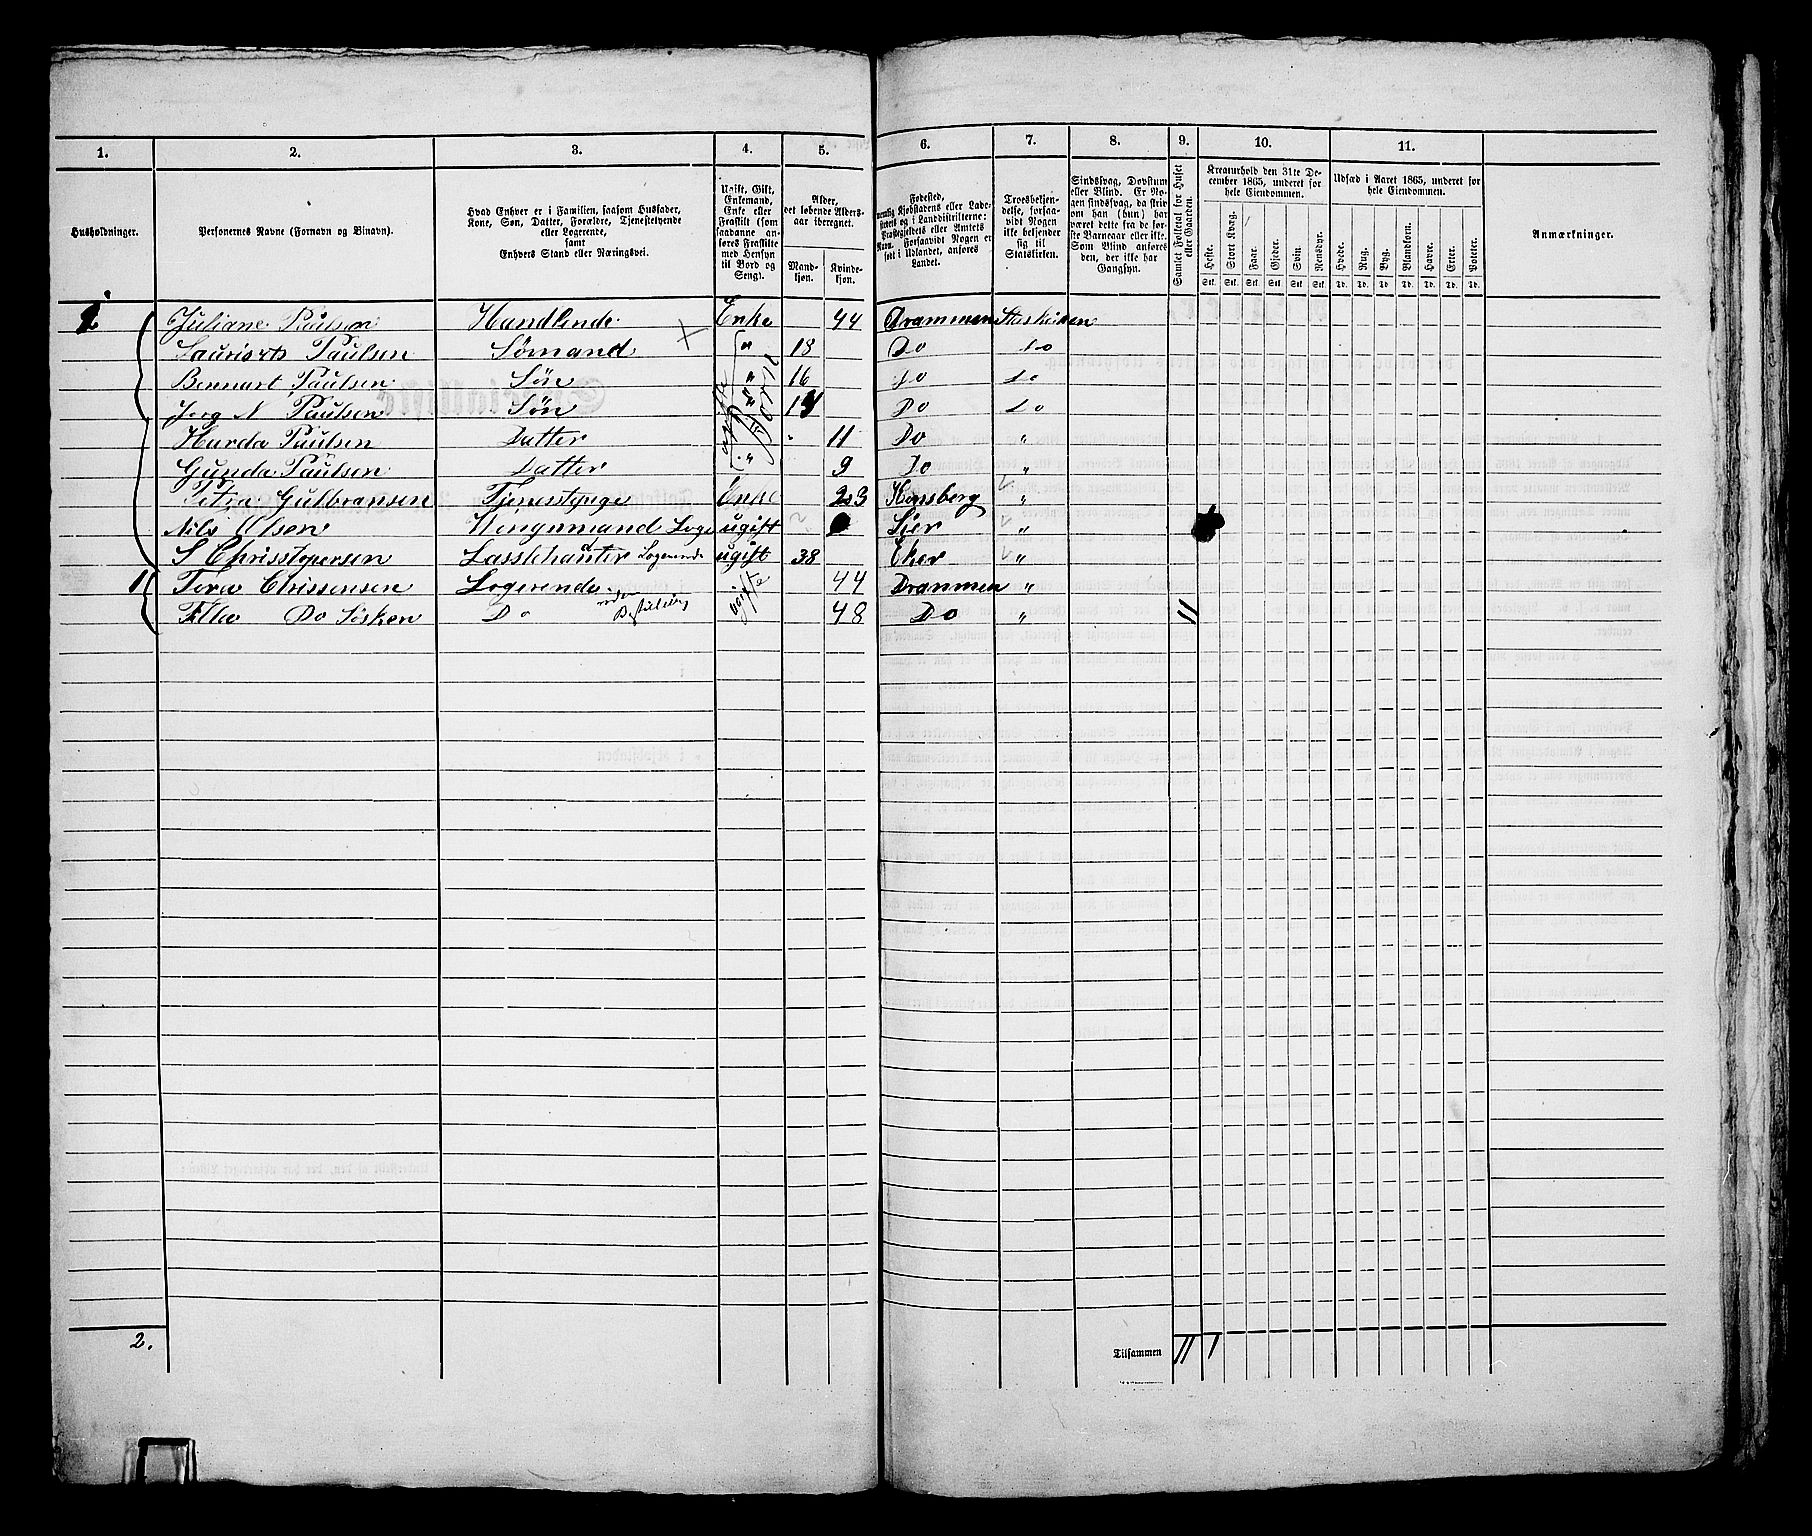 1. 2. 3. 4. 5. 6. 7. 8. 9. 10. 11.
Husholdninger.
Personernes Navne (Fornavn og Binavn).
Hvad Enhver er i Familien, saasom Husfader,
Kone, Søn, Datter, Forældre, Tjenestetyende
eller Logerende,
samt
Enhvers Stand eller Næringsvei.
Ugift, Gift,
Enkemand,
Enke eller
Fraskilt (som
saadanne an-
føres Fraskilte
med Hensyn
til Bord og
Seng).
Alder,
det løbende Alders-
aar iberegnet.
Mand-
kjøn.
Kvinde-
kjøn.
Fødested,
nemlig Kjøbstadens eller Lade-
stedets og i Landdistrikterne:
Præstegjeldets eller Amtets
Navn. Forsaavidt Nogen er
født i Udlandet, anføres
Landet.
Troesbekjen-
delse, forsaa-
vidt Nogen
ikke bekjender
sig til
Statskirken.
Sindssvag, Døvstum
eller Blind. Er No-
gen sindssvag, da skriv
om han (hun) har
været dette fra de før-
ste Barneaar eller ikke.
Som Blind anføres
den, der ikke har
Gangsyn.
Samlet Folketal for Huset
eller Gaarden.
Kreaturhold den 31te De-
cember 1865, underet for
hele Eiendommen.
Heste. Stort Kvæg. Faar. Gjeder. Svin. Rensdyr.
Stk. Stk. Stk. Stk. Stk. Stk.
Udsæd i Aaret 1865, underet for
hele Eiendommen.
Hvede. Rug. Byg. Blandkorn. Havre. Erter. Poteter.
Td. Td. Td. Td. Td. Td. Td.
Anmærkninger.
Juliane Paulsen Handlende Enke 44 Drammen Staskirken
Paulsen Sømand " 18 Do Do
Bennart Paulsen Søn " 16 Do Do
Jørg N Paulsen Søn " Do Do
Harda Paulsen Datter 11 Do "
Gunda Paulsen Datter " 9 Do "
Petra Gulbransen Enke "
Nils Olsen ugift Lier "
S Christopersen Logerende ugift 38 Eker "
Chrissensen Logerende 44 Drammen "
Do Søsken Do 48 Do " 11
ugifte
2.
Tilsammen 11 1